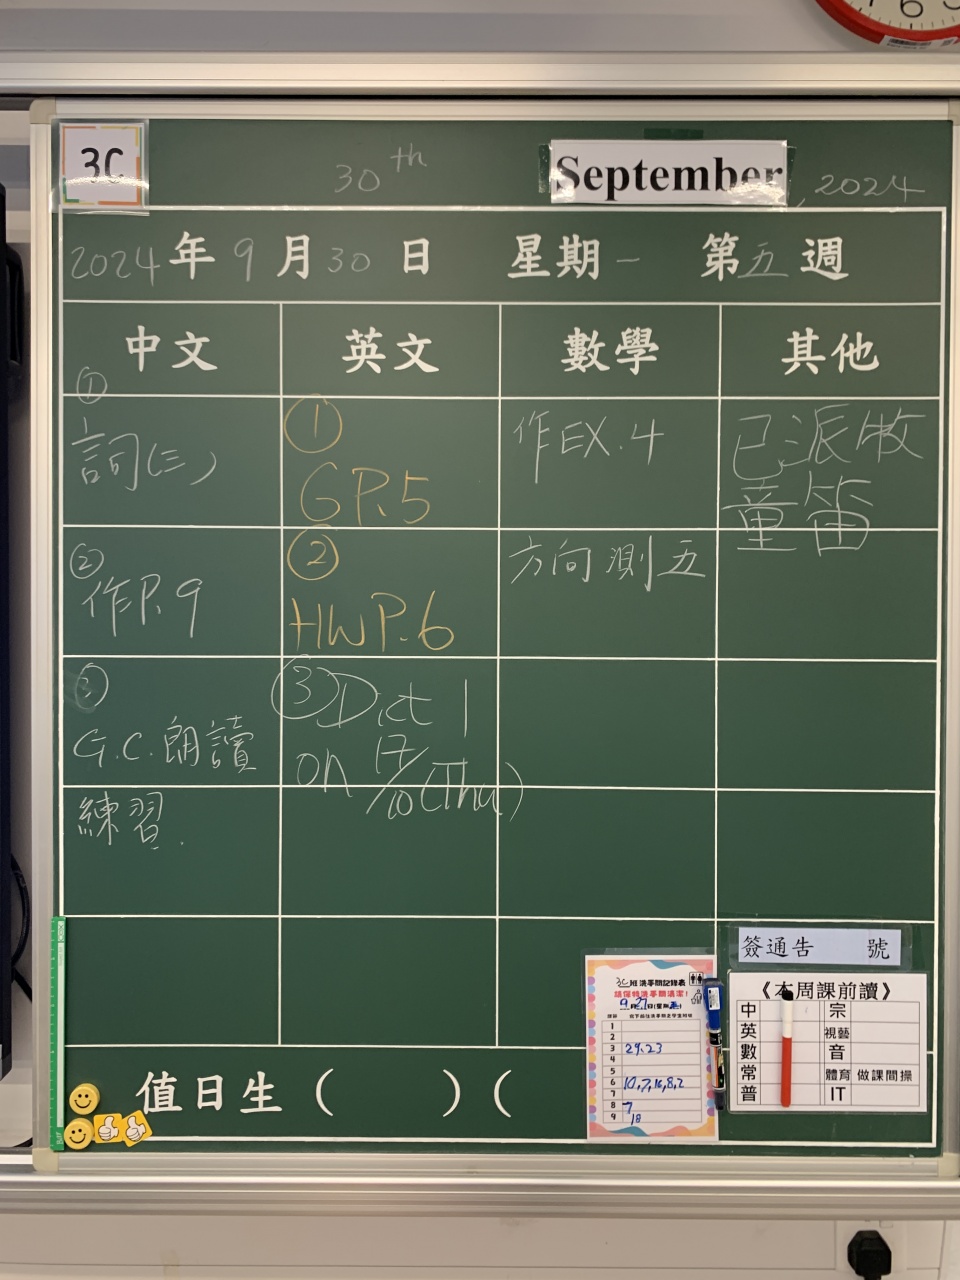 6
3C
30th September, 2024
2024年9月30日 星期一 第五週
中文 英文 數學 其他
①
詞(三)
②
作P.9
③
G.C.朗讀
練習.
①
GP.5
②
HW P.6
③Dict 1
on 17/10(Thu)
作EX.4
方向測五
已派牧
童笛
簽通告 號
《本周課前讀》
中 宗
英 視藝
數 音
常 體育 做課間操
普 IT
3C班洗手間記錄表
請保持洗手間清潔!
9月27日(星期五)
1
2
3 29,23
4
5
6 10,7,16,8,2
7
8 7
9 18
值日生( )(